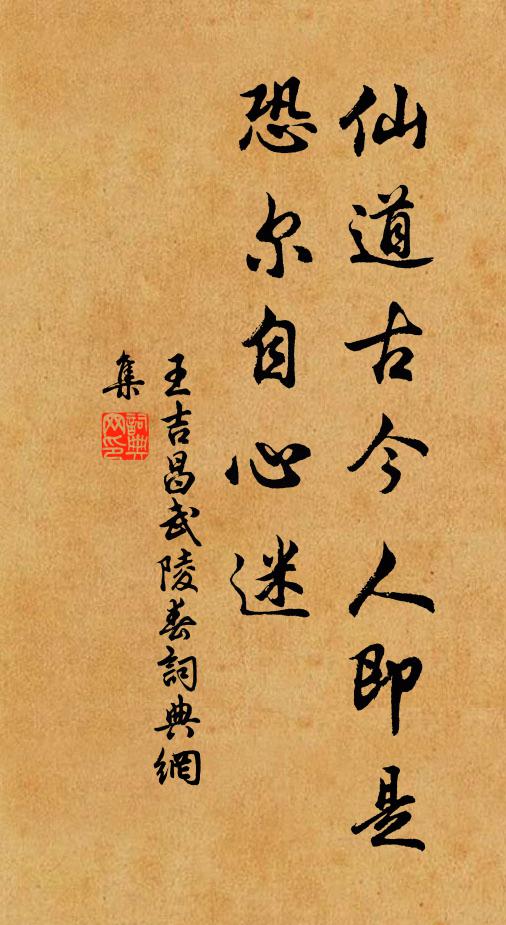 仙道古今人即是
恐尔自心迷
王吉昌武陵春詞典網
集
詞典
网印